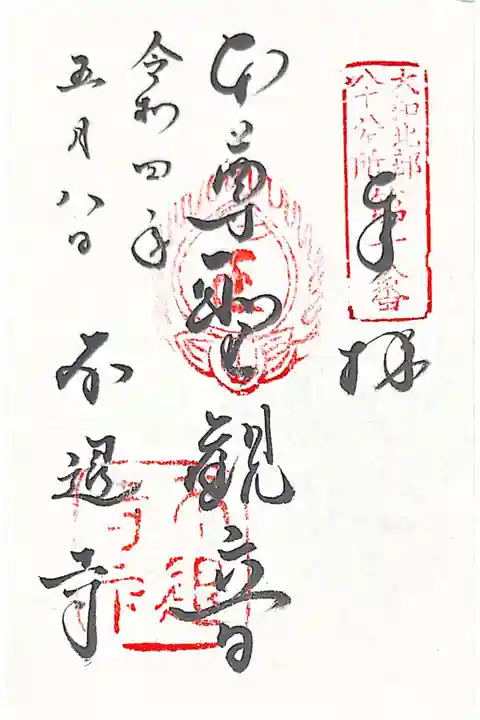 大和北部
八十八ヶ所
第十八番
奉拝
本尊聖観音
令和四年
五月八日
不退寺
不退
寺印